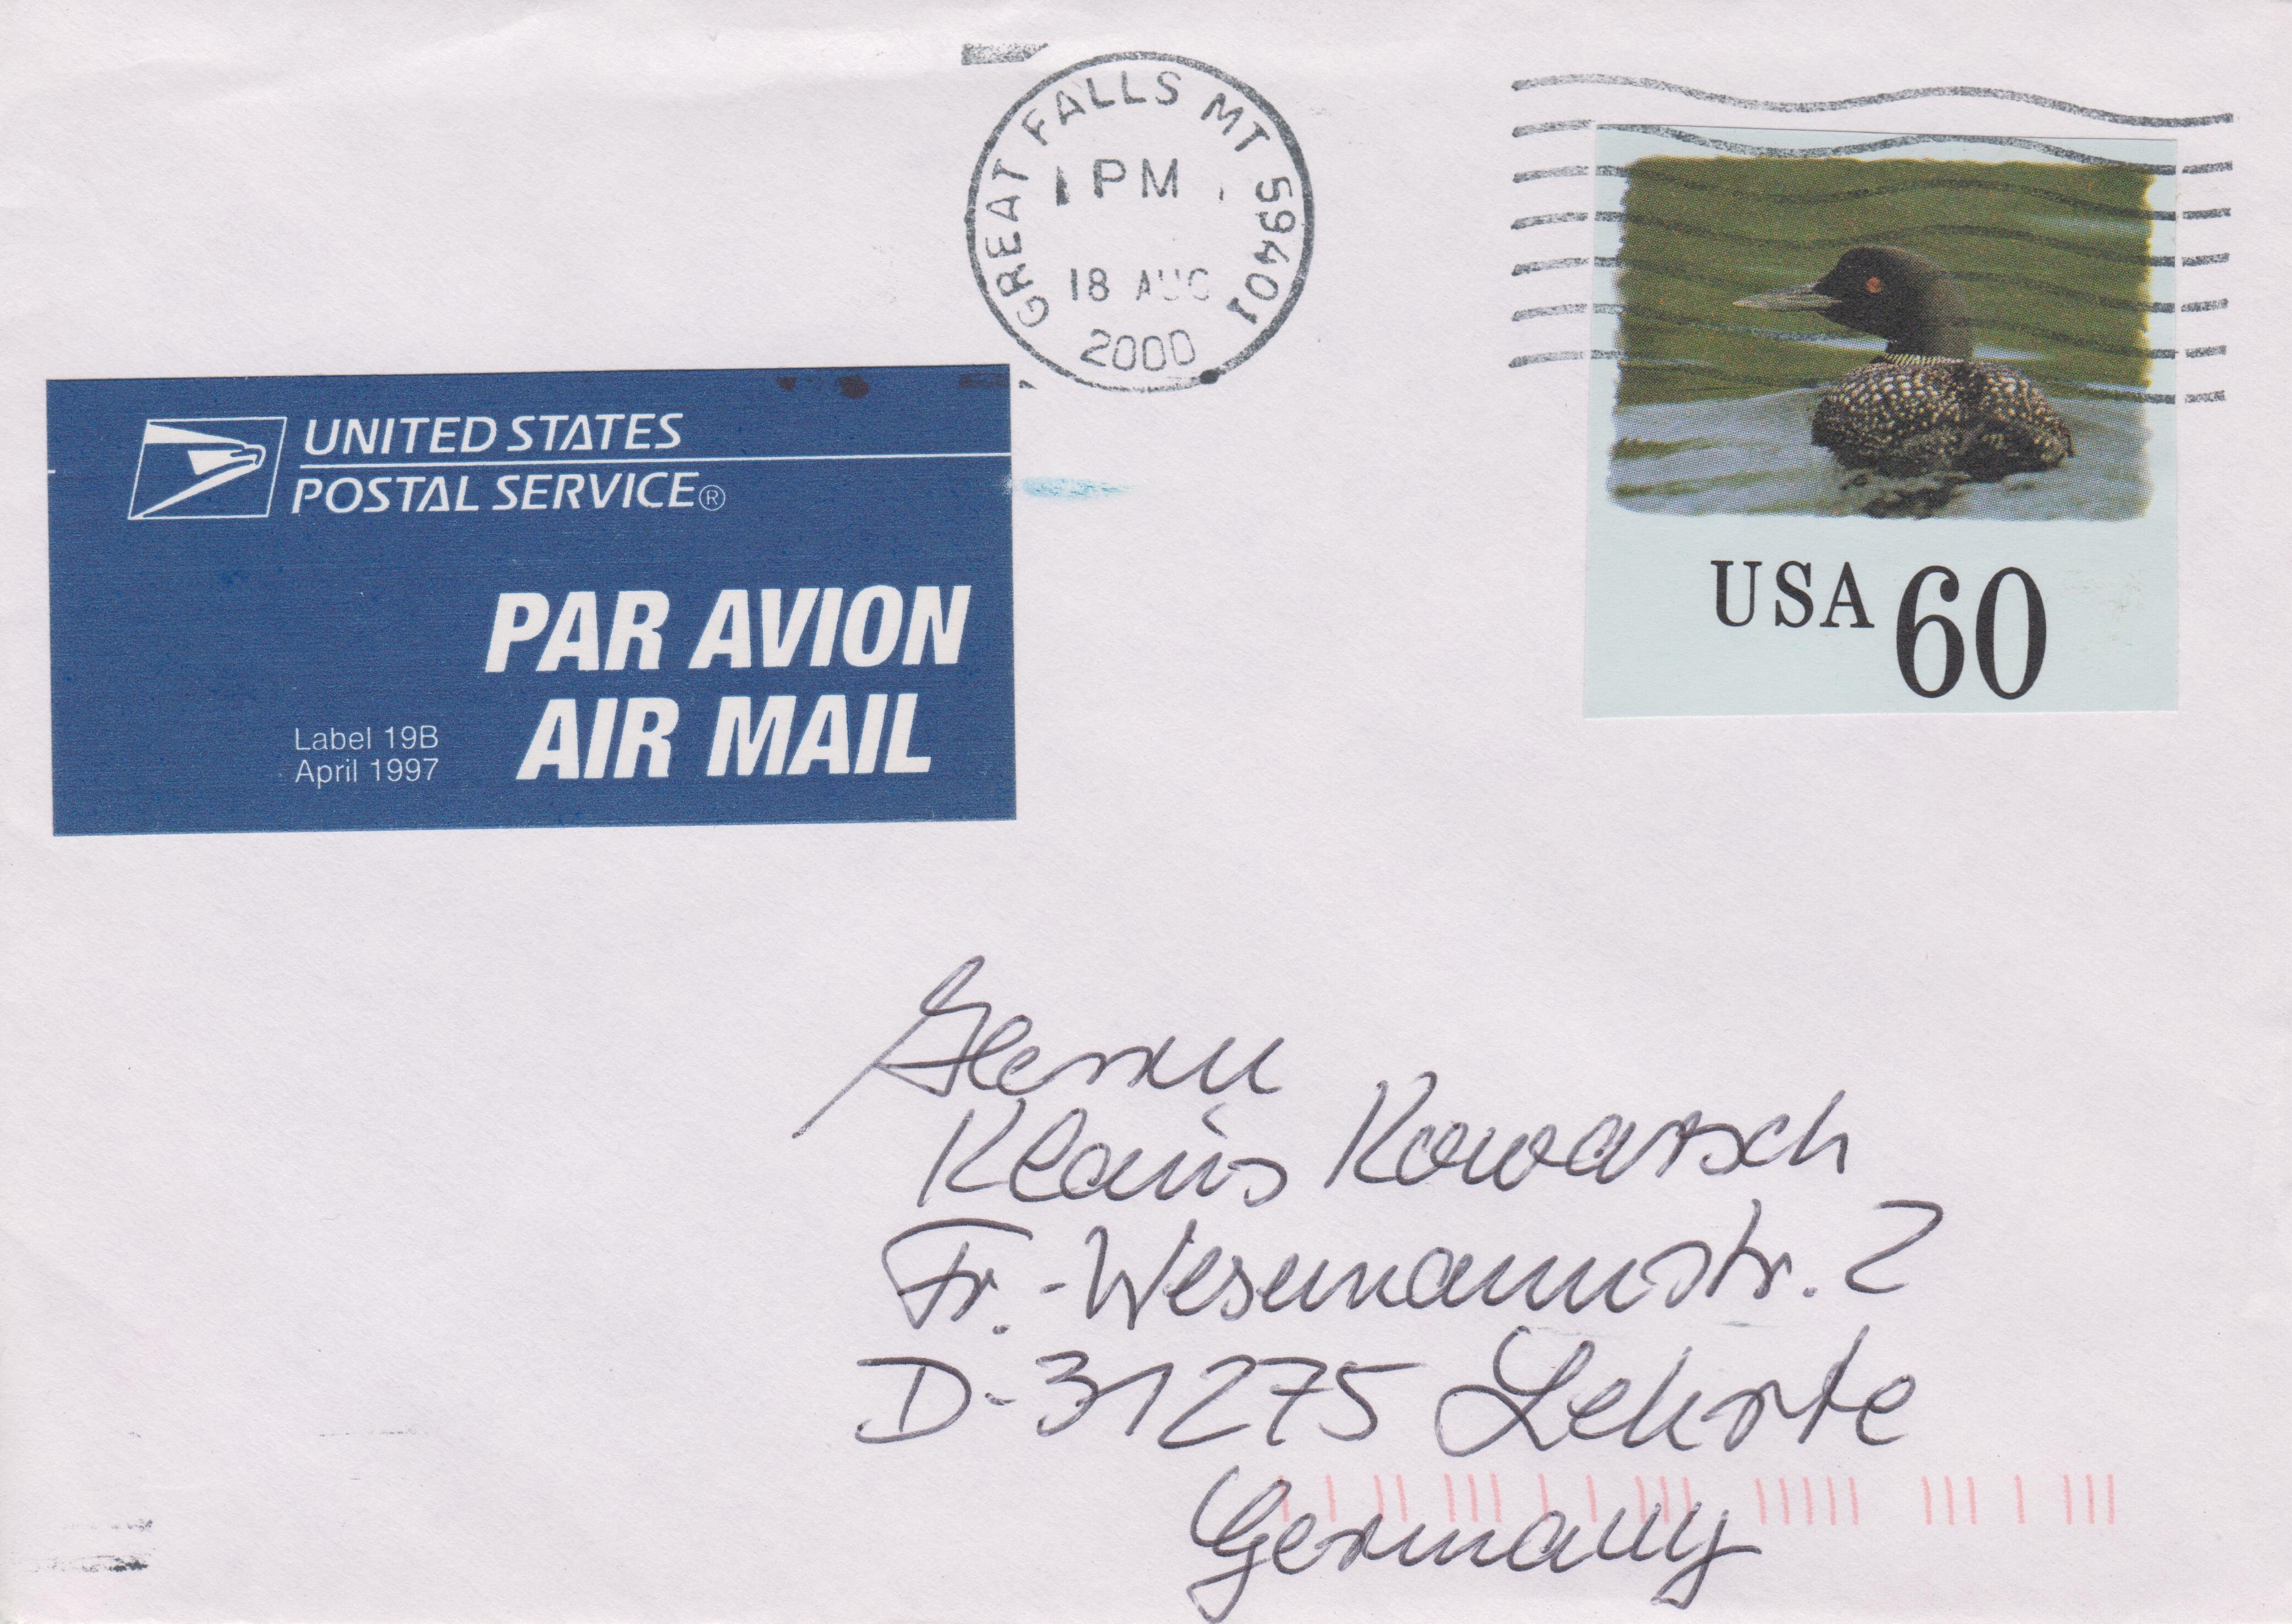 GREAT FALLS MT 59401
PM
18 AUG
2000
UNITED STATES
POSTAL SERVICE®
PAR AVION
AIR MAIL
Label 19B
April 1997
USA 60
Herrn
Klaus Kowarsch
Fr.-Wesemannstr. 2
D-31275 Lehrte
Germany